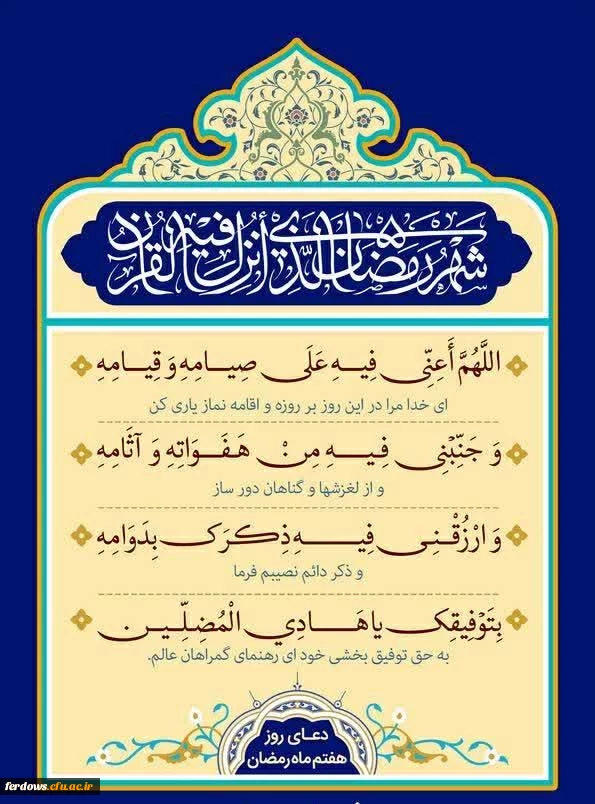 شَهْرُ رَمَضَانَ الَّذِي أُنْزِلَ فِيهِ الْقُرْآنُ
اللَّهُمَّ أَعِنِّی فِیهِ عَلَی صِیامِهِ وَ قِیامِهِ
ای خدا مرا در این روز بر روزه و اقامه نماز یاری کن
وَ جَنِّبْنِی فِیهِ مِنْ هَفَوَاتِهِ وَ آثَامِهِ
و از لغزشها و گناهان دور ساز
وَ ارْزُقْنِی فِیهِ ذِکرَک بِدَوَامِهِ
و ذکر دائم نصیبم فرما
بِتَوْفِیقِک یا هَادِي الْمُضِلِّین
به حق توفیق بخشی خود ای رهنمای گمراهان عالم.
دعای روز
هفتم ماه رمضان
ferdows.cfu.ac.ir